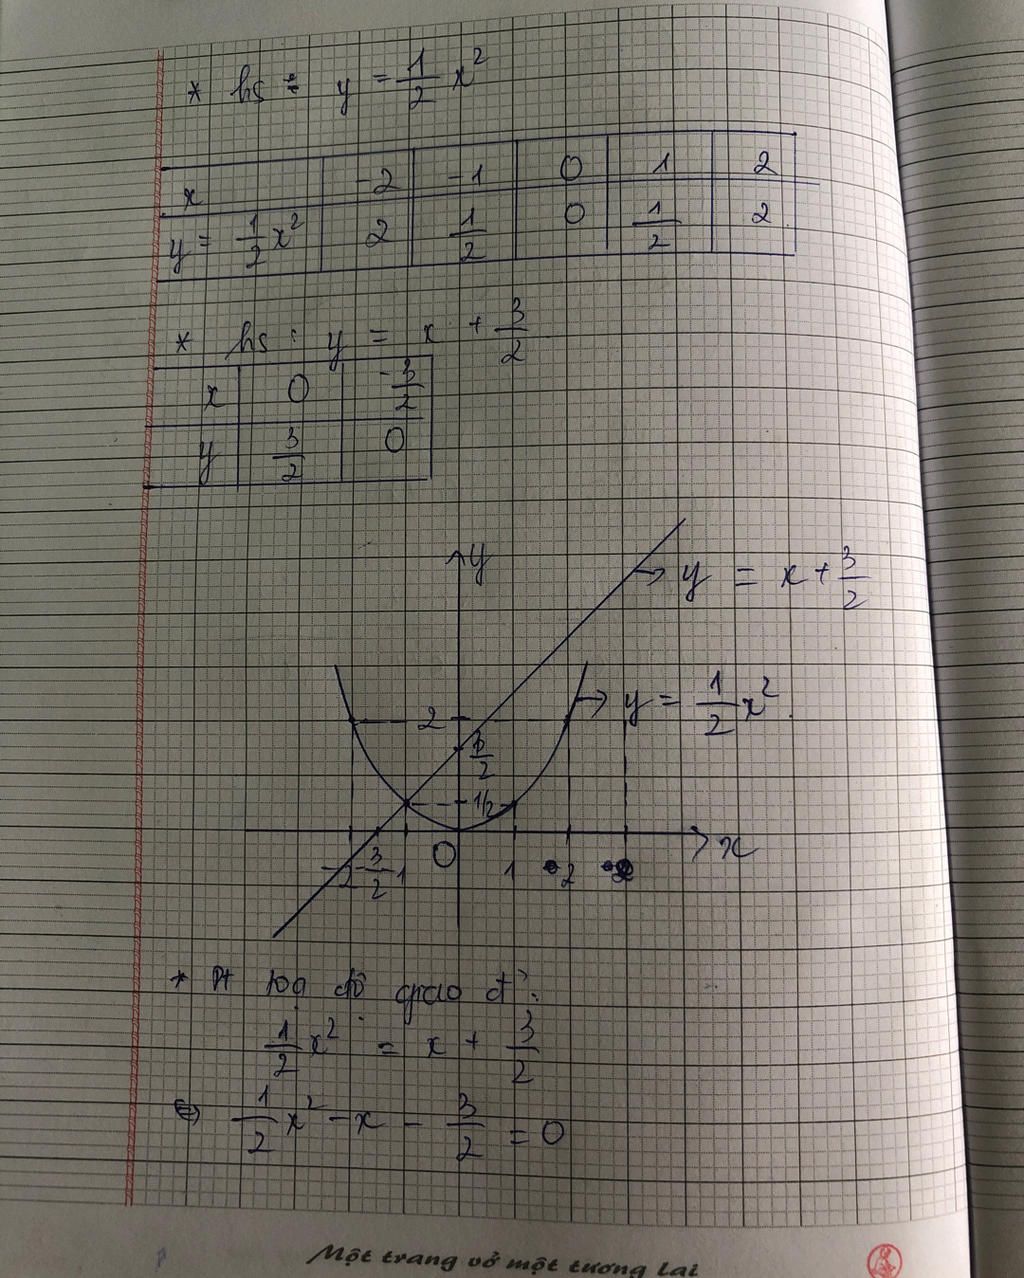 * hs : y = 1/2 x²
x -2 -1 0 1 2
y = 1/2 x² 2 1/2 0 1/2 2
* hs : y = x + 3/2
x 0 -3/2
y 3/2 0
y
y = x + 3/2
y = 1/2 x²
2
3/2
1/2
-2 -3/2 -1 O 1 2 x
* Pt toạ độ giao đ':
1/2 x² = x + 3/2
⇔ 1/2 x² - x - 3/2 = 0
Một trang vở một tương lai